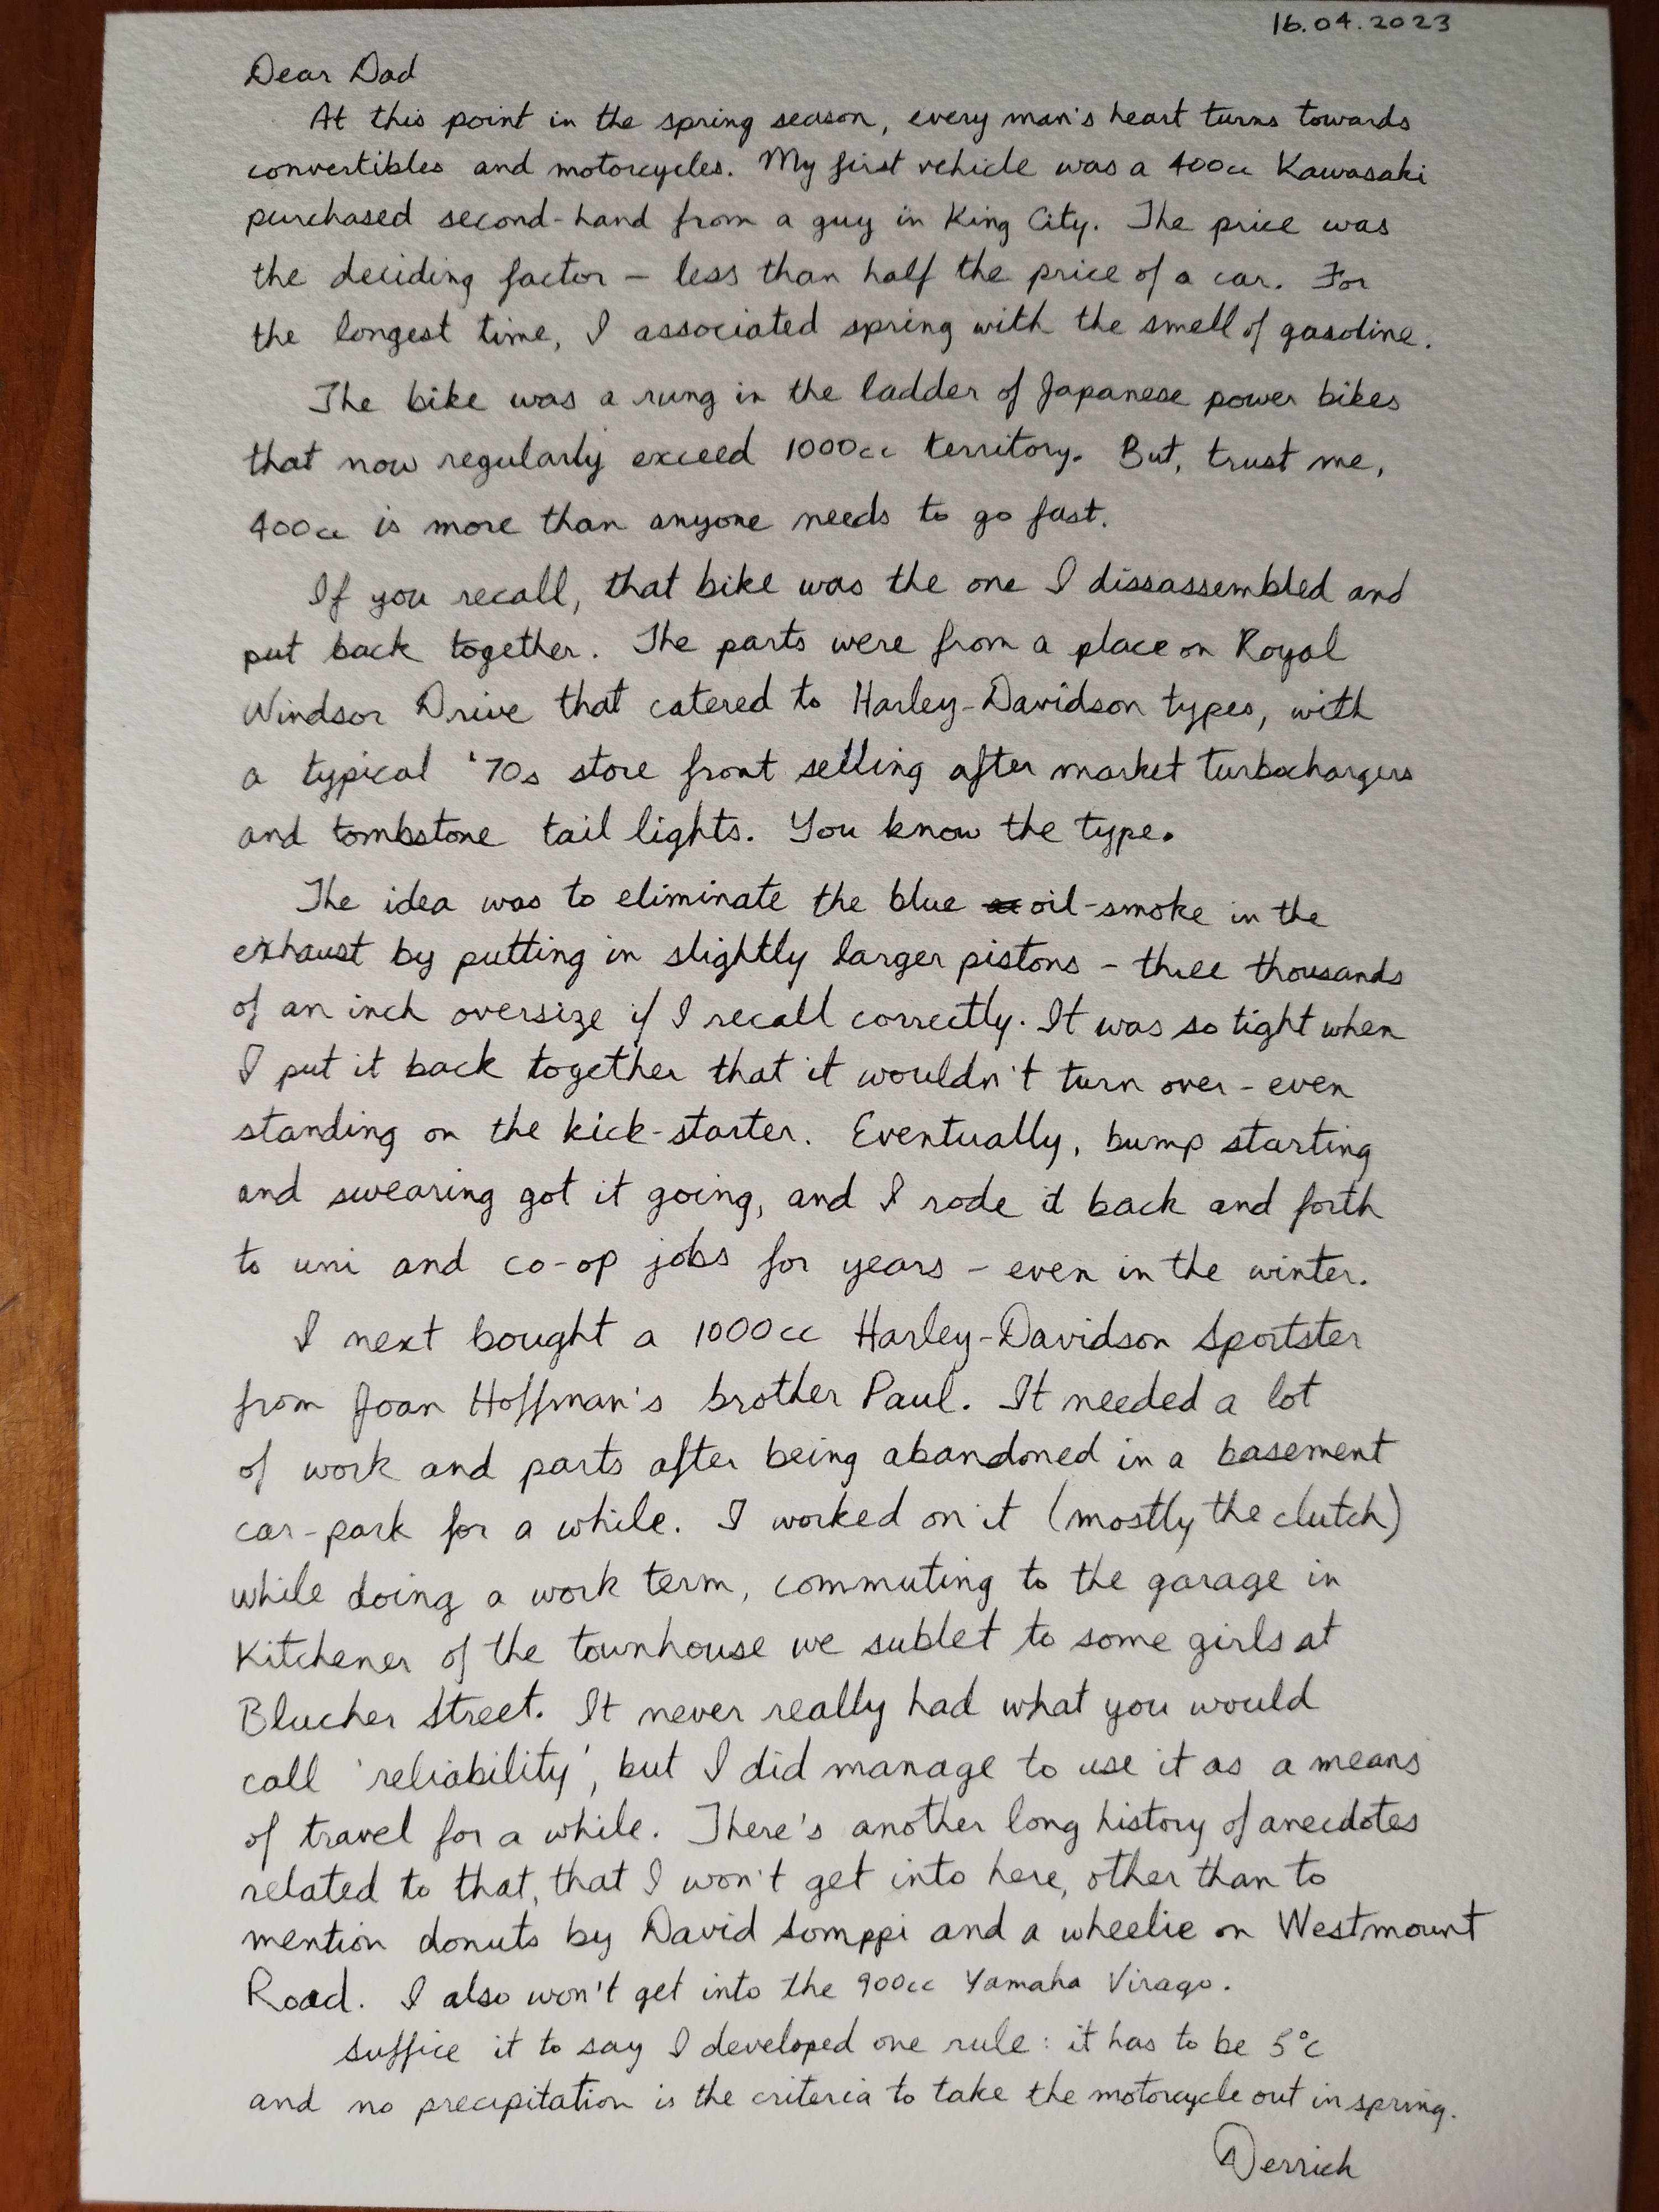 16.04.2023
Dear Dad
At this point in the spring season, every man's heart turns towards
convertibles and motorcycles. My first vehicle was a 400cc Kawasaki
purchased second-hand from a guy in King City. The price was
the deciding factor – less than half the price of a car. For
the longest time, I associated spring with the smell of gasoline.
The bike was a rung in the ladder of Japanese power bikes
that now regularly exceed 1000cc territory. But, trust me,
400cc is more than anyone needs to go fast.
If you recall, that bike was the one I dissassembled and
put back together. The parts were from a place on Royal
Windsor Drive that catered to Harley-Davidson types, with
a typical '70s store front selling after market turbochargers
and tombstone tail lights. You know the type.
The idea was to eliminate the blue oil-smoke in the
exhaust by putting in slightly larger pistons – three thousands
of an inch oversize if I recall correctly. It was so tight when
I put it back together that it wouldn't turn over – even
standing on the kick-starter. Eventually, bump starting
and swearing got it going, and I rode it back and forth
to uni and co-op jobs for years – even in the winter.
I next bought a 1000cc Harley-Davidson Sportster
from Joan Hoffman's brother Paul. It needed a lot
of work and parts after being abandoned in a basement
car-park for a while. I worked on it (mostly the clutch)
while doing a work term, commuting to the garage in
Kitchener of the townhouse we sublet to some girls at
Blucher Street. It never really had what you would
call 'reliability', but I did manage to use it as a means
of travel for a while. There's another long history of anecdotes
related to that, that I won't get into here, other than to
mention donuts by David Somppi and a wheelie on Westmount
Road. I also won't get into the 900cc Yamaha Virago.
Suffice it to say I developed one rule: it has to be 5°C
and no precipitation is the criteria to take the motorcycle out in spring.
Derrick